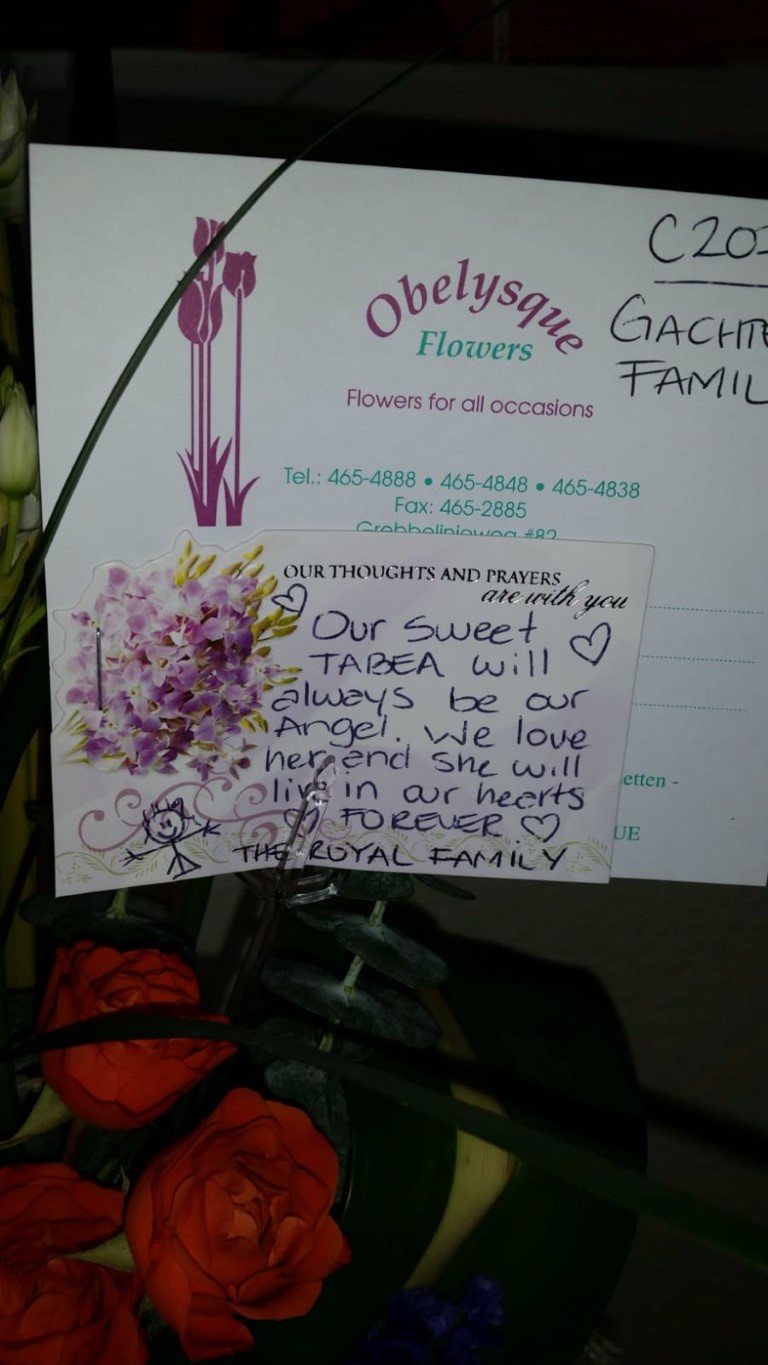 C20
GACHTE
FAMIL
Obelysque
Flowers
Flowers for all occasions
Tel.: 465-4888 • 465-4848 • 465-4838
Fax: 465-2885
Grebbelinieweg #82
OUR THOUGHTS AND PRAYERS
are with you
Our sweet
TABEA will
always be our
Angel. We love
her and she will
live in our hearts
FOREVER
THE ROYAL FAMILY
etten -
UE